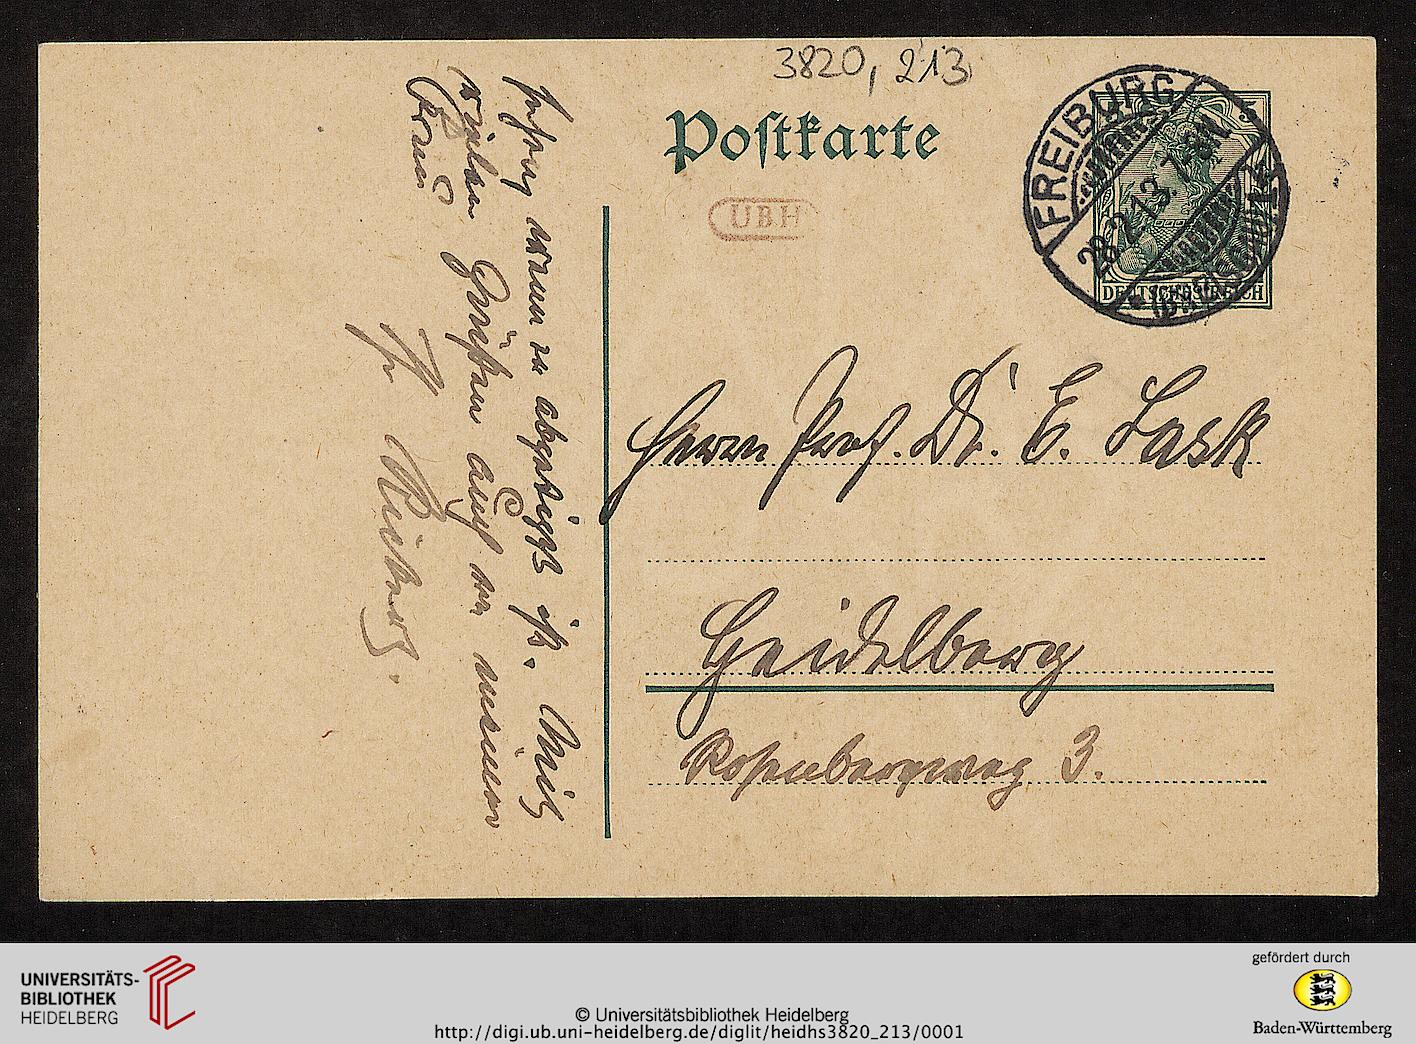 3820, 213
Postkarte
UBH
FREIBURG
28.2.13.
5
DEUTSCHES REICH
Herrn Prof. Dr. E. Lask
Heidelberg
Rosenbergweg 3.
wann er abgereist ist. Mit
vielen Grüßen auch von meiner
Frau
Ihr Rickert.
UNIVERSITÄTS-
BIBLIOTHEK
HEIDELBERG
© Universitätsbibliothek Heidelberg
http://digi.ub.uni-heidelberg.de/diglit/heidhs3820_213/0001
gefördert durch
Baden-Württemberg